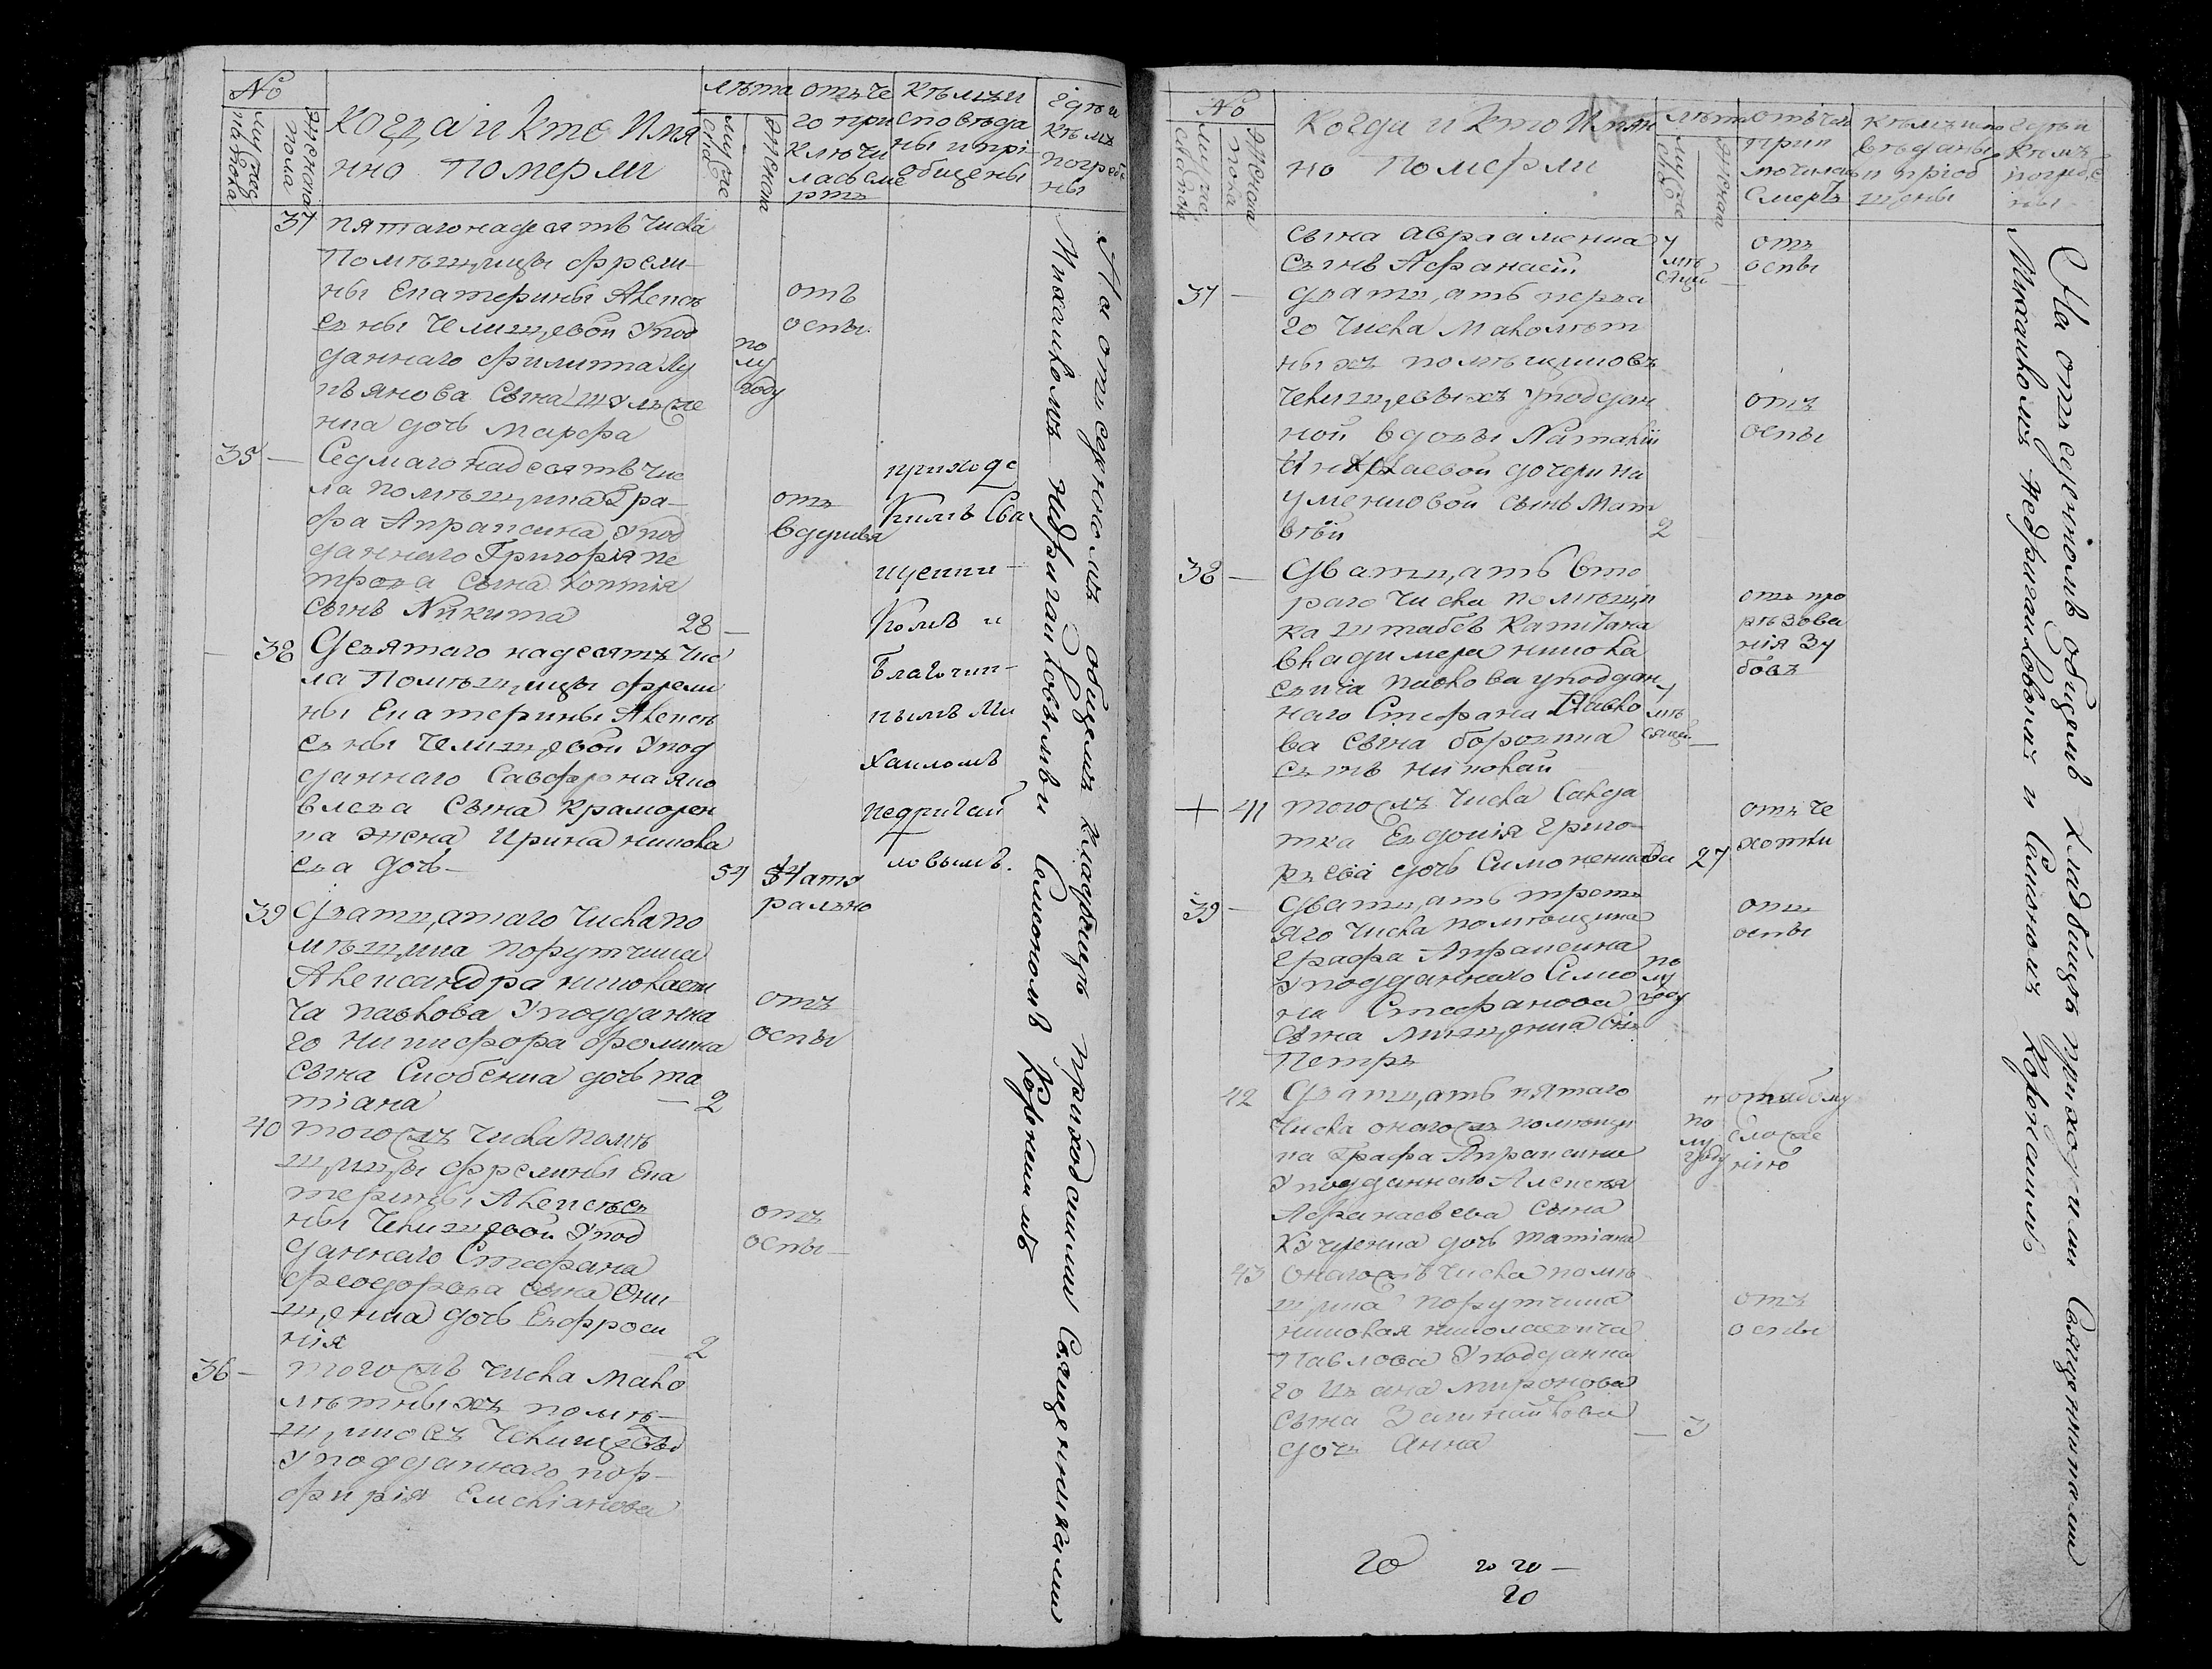 No
мужеска пола
женска пола
когда и кто Имя
нно померли
лѣта
мужеска
женска
отъ че
го при
ключи
ласьсме
рть
кѣмъи
сповѣда
ны и прі
общены
гдѣ и
кѣмъ
погребе
ны
37 пятагонадесять Числа
Помѣщицы фрели
ны Екатерины Алексѣ
евны Челищевой упод
даннаго филиппа Лу
кьянова Сына
нка дочь Марфа
по
лу
году
отъ
оспы
35 — Седмагонадесять Чис
ла помѣщика Гра
фа Апраксина упод
даннаго Григорія пе
трова сына коптія
сынъ Никита 28 —
отъ
вдушья
приходс
кимъ Свя
щенни
комъ и
Благочин
нымъ Ми
хаиломъ
недригай
ловымъ.
38 Девятаго надесять Чис
ла Помѣщицы фрели
ны Екатерины Алексѣ
евны Челищевой упод
даннаго Савфрона Яко
влева Сына Краморен
ка жена Ирина никола
ева дочь — 54
натурально
39 Двадцатаго Числа по
мѣщика порутчика
Александра николаеви
ча павлова уподданна
го Никифора фомина
сына Скобенка дочь та
тіана — 2
отъ
оспы
40 тогожъ Числа помѣ
щицы фрелины Ека
терины Алексѣев
ны Челищевой упод
даннаго Стефана
феодорова сына Они
щенка дочь Евфроси
нія 2
отъ
оспы
36 — тогожъ Числа мало
лѣтныхъ помѣ
щиковъ Челищевы
уподданнаго пор
фирія Емеліанова
На отъ сединомъ общемъ кладбищѣ приходскими Священниками
Михаиломъ недригайловымъ и Симеономъ Корѣкинымъ
No
мужеска пола
женска пола
Когда и кто Имян
но померли
лѣта
мужеска
женска
отъ чего
прик
лючилась
Смерть
кѣмъ испо
вѣданы
и пріоб
щены
гдѣ и
кѣмъ
погребе
ны
сына авраменка
сынъ Афанасій
4
мѣ
сяцы
отъ
оспы
37 — двадцать перва
го Числа малолѣт
ныхъ помѣщиковъ
Челищевыхъ уподдан
ной вдовы Наталіи
Николаевой дочери На
уменковой сынъ Мат
вѣй 2
отъ
оспы
38 — Двадцать вто
раго Числа помѣщи
ка штабсъ Капитана
владимера никола
евича павлова уподдан
наго Стефана Павло
ва сына бороткa
сынъ николай
4
мѣ
сяцы —
отъ про
рѣзова
нія зу
бовъ
+ 41 тогожъ Числа Салда
тка Евдокія Григо
рьева дочь Симоненкова 27
отъ че
хотки
39 — Двадцать треть
яго Числа помѣщика
графа Апраксина
уподданнаго Симо
на Стефанова
сына Лищенка сы
Петръ
по
лу
году
отъ
оспы
42 Двадцать пятаго
Числа онагожъ помѣщи
ка Графа Апраксина
уподданнаго Алексѣя
Афанасьева Сына
Кущенка дочь татіана
по
лу
году
43 Онагожъ Числа помѣ
щика порутчика
николая николаевича
Павлова уподданна
го Ивана миронова
сына
дочь Анна — 3
отъ
оспы
20 20 20 —
20
На отъ сединомъ общемъ кладбищѣ приходскими Священниками
Михаиломъ недригайловымъ и Симеономъ Корѣкинымъ